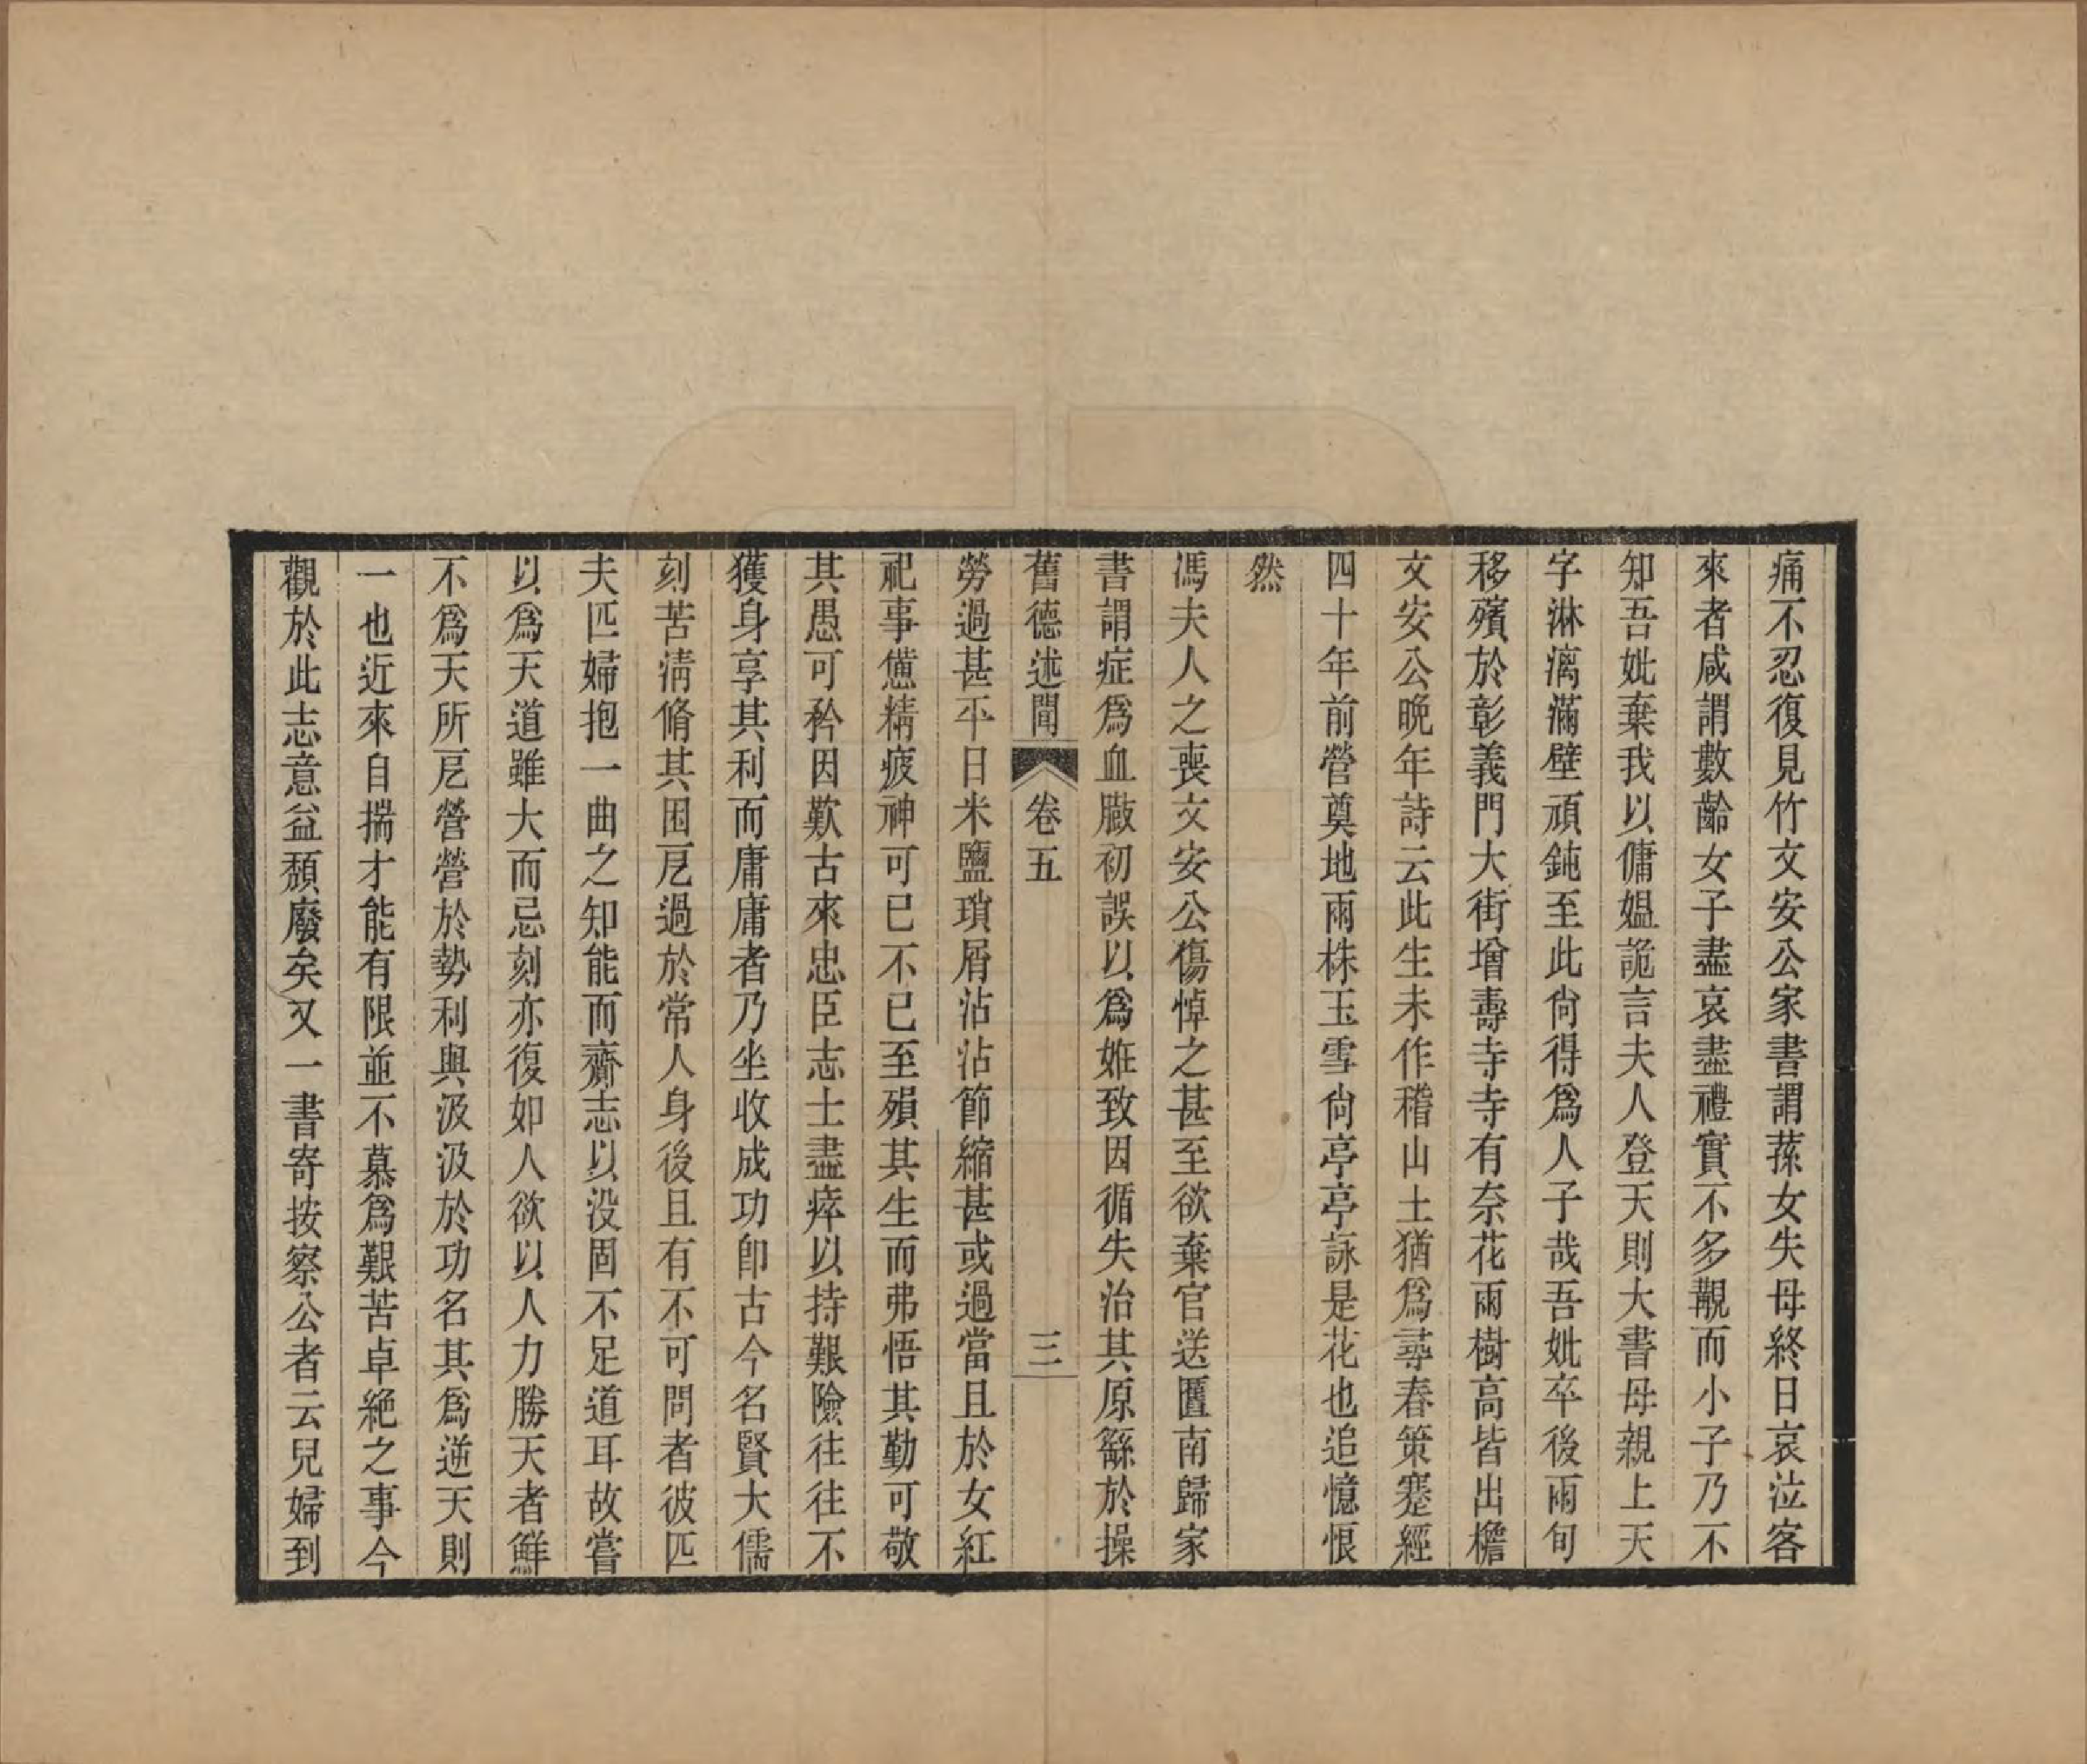 痛不忍復見竹文安公家書謂蓀女失母終日哀泣客
來者咸謂數齡女子盡哀盡禮實不多覯而小子乃不
知吾妣棄我以傭媼詭言夫人登天則大書母親上天
字淋漓滿壁頑鈍至此尙得爲人子哉吾妣卒後兩旬
移殯於彰義門大街增壽寺寺有奈花兩樹高皆出檐
文安公晚年詩云此生未作稽山土猶爲尋春策蹇經
四十年前營奠地兩株玉雪尙亭亭詠是花也追憶悵
然
馮夫人之喪文安公傷悼之甚至欲棄官送匶南歸家
書謂症爲血臌初誤以爲姙致因循失治其原繇於操
舊德述聞　卷五　三
勞過甚平日米鹽瑣屑沾沾節縮甚或過當且於女紅
祀事憊精疲神可已不已至殞其生而弗悟其勤可敬
其愚可矜因歎古來忠臣志士盡瘁以持艱險往往不
獲身享其利而庸庸者乃坐收成功卽古今名賢大儒
刻苦淸脩其困厄過於常人身後且有不可問者彼匹
夫匹婦抱一曲之知能而齎志以没固不足道耳故嘗
以爲天道雖大而忌刻亦復如人欲以人力勝天者鮮
不爲天所厄營營於勢利與汲汲於功名其爲逆天則
一也近來自揣才能有限並不慕爲艱苦卓絶之事今
觀於此志意益頽廢矣又一書寄按察公者云兒婦到